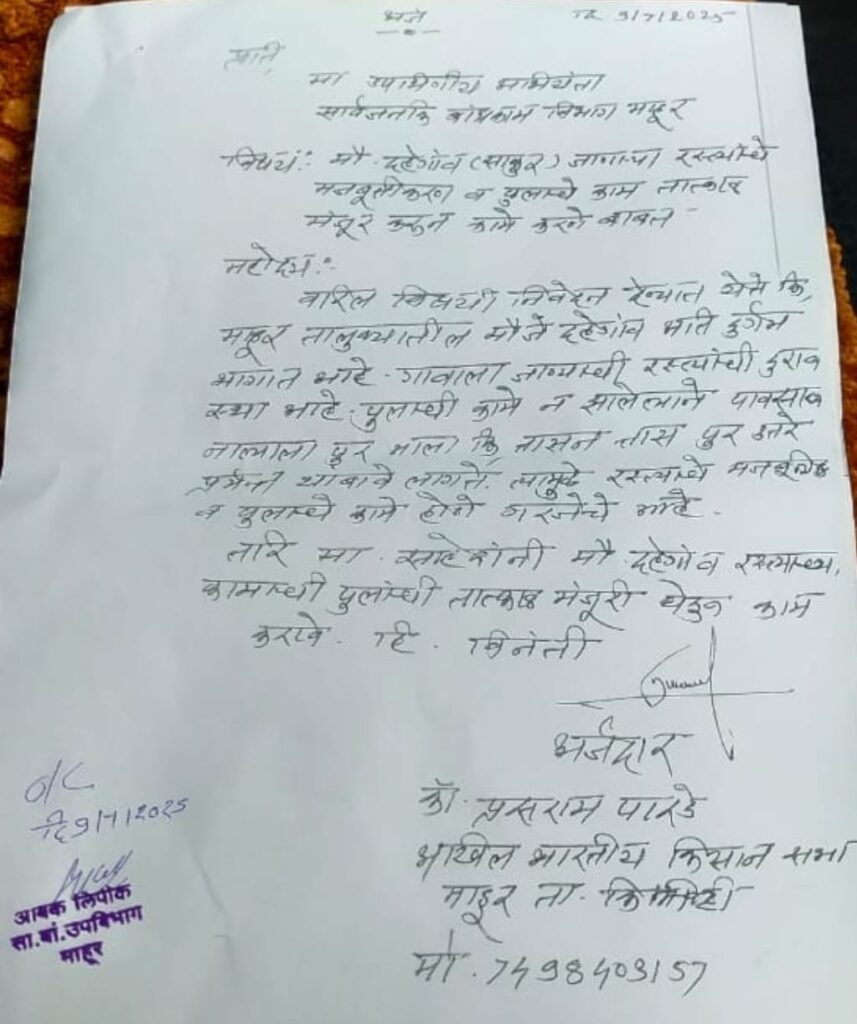 अर्ज
दि 9/7/2025
प्रति,
मा उपविभागीय अभियंता
सार्वजनिक बांधकाम विभाग माहूर
विषय:- मौ. दहेगांव (साकुर) जाणाऱ्या रस्त्याचे
मजबूतीकरण व पुलाचे काम तात्काळ
मंजूर करुन कामे करणे बाबत
महोदय:-
वरिल विषयी निवेदन देण्यात येते कि,
माहूर तालुक्यातील मौजे दहेगांव अति दुर्गम
भागात आहे. गावाला जाण्याची रस्त्याची दुराव
स्था आहे. पुलाची कामे न झालेत्याने पावसाळ
नाल्याला पुर आला कि तासन तास पुर उतरे
पर्यन्त थांबावे लागते. त्यामुळे रस्त्याचे मजबुतीक
व पुलाचे कामे होणे गरजेचे आहे.
तरि मा. साहेबांनी मौ. दहेगांव रस्त्याच्या,
कामाची पुलाची तात्काळ मंजूरी घेऊन काम
करावे. हि. विनंती
अर्जदार
कॉ. प्रसराम पारडे
अखिल भारतीय किसान सभा
माहूर ता.
मो. 7498403157
o/c
दि 9/7/2025
आवक लिपीक
सा.बां.उपविभाग
माहूर